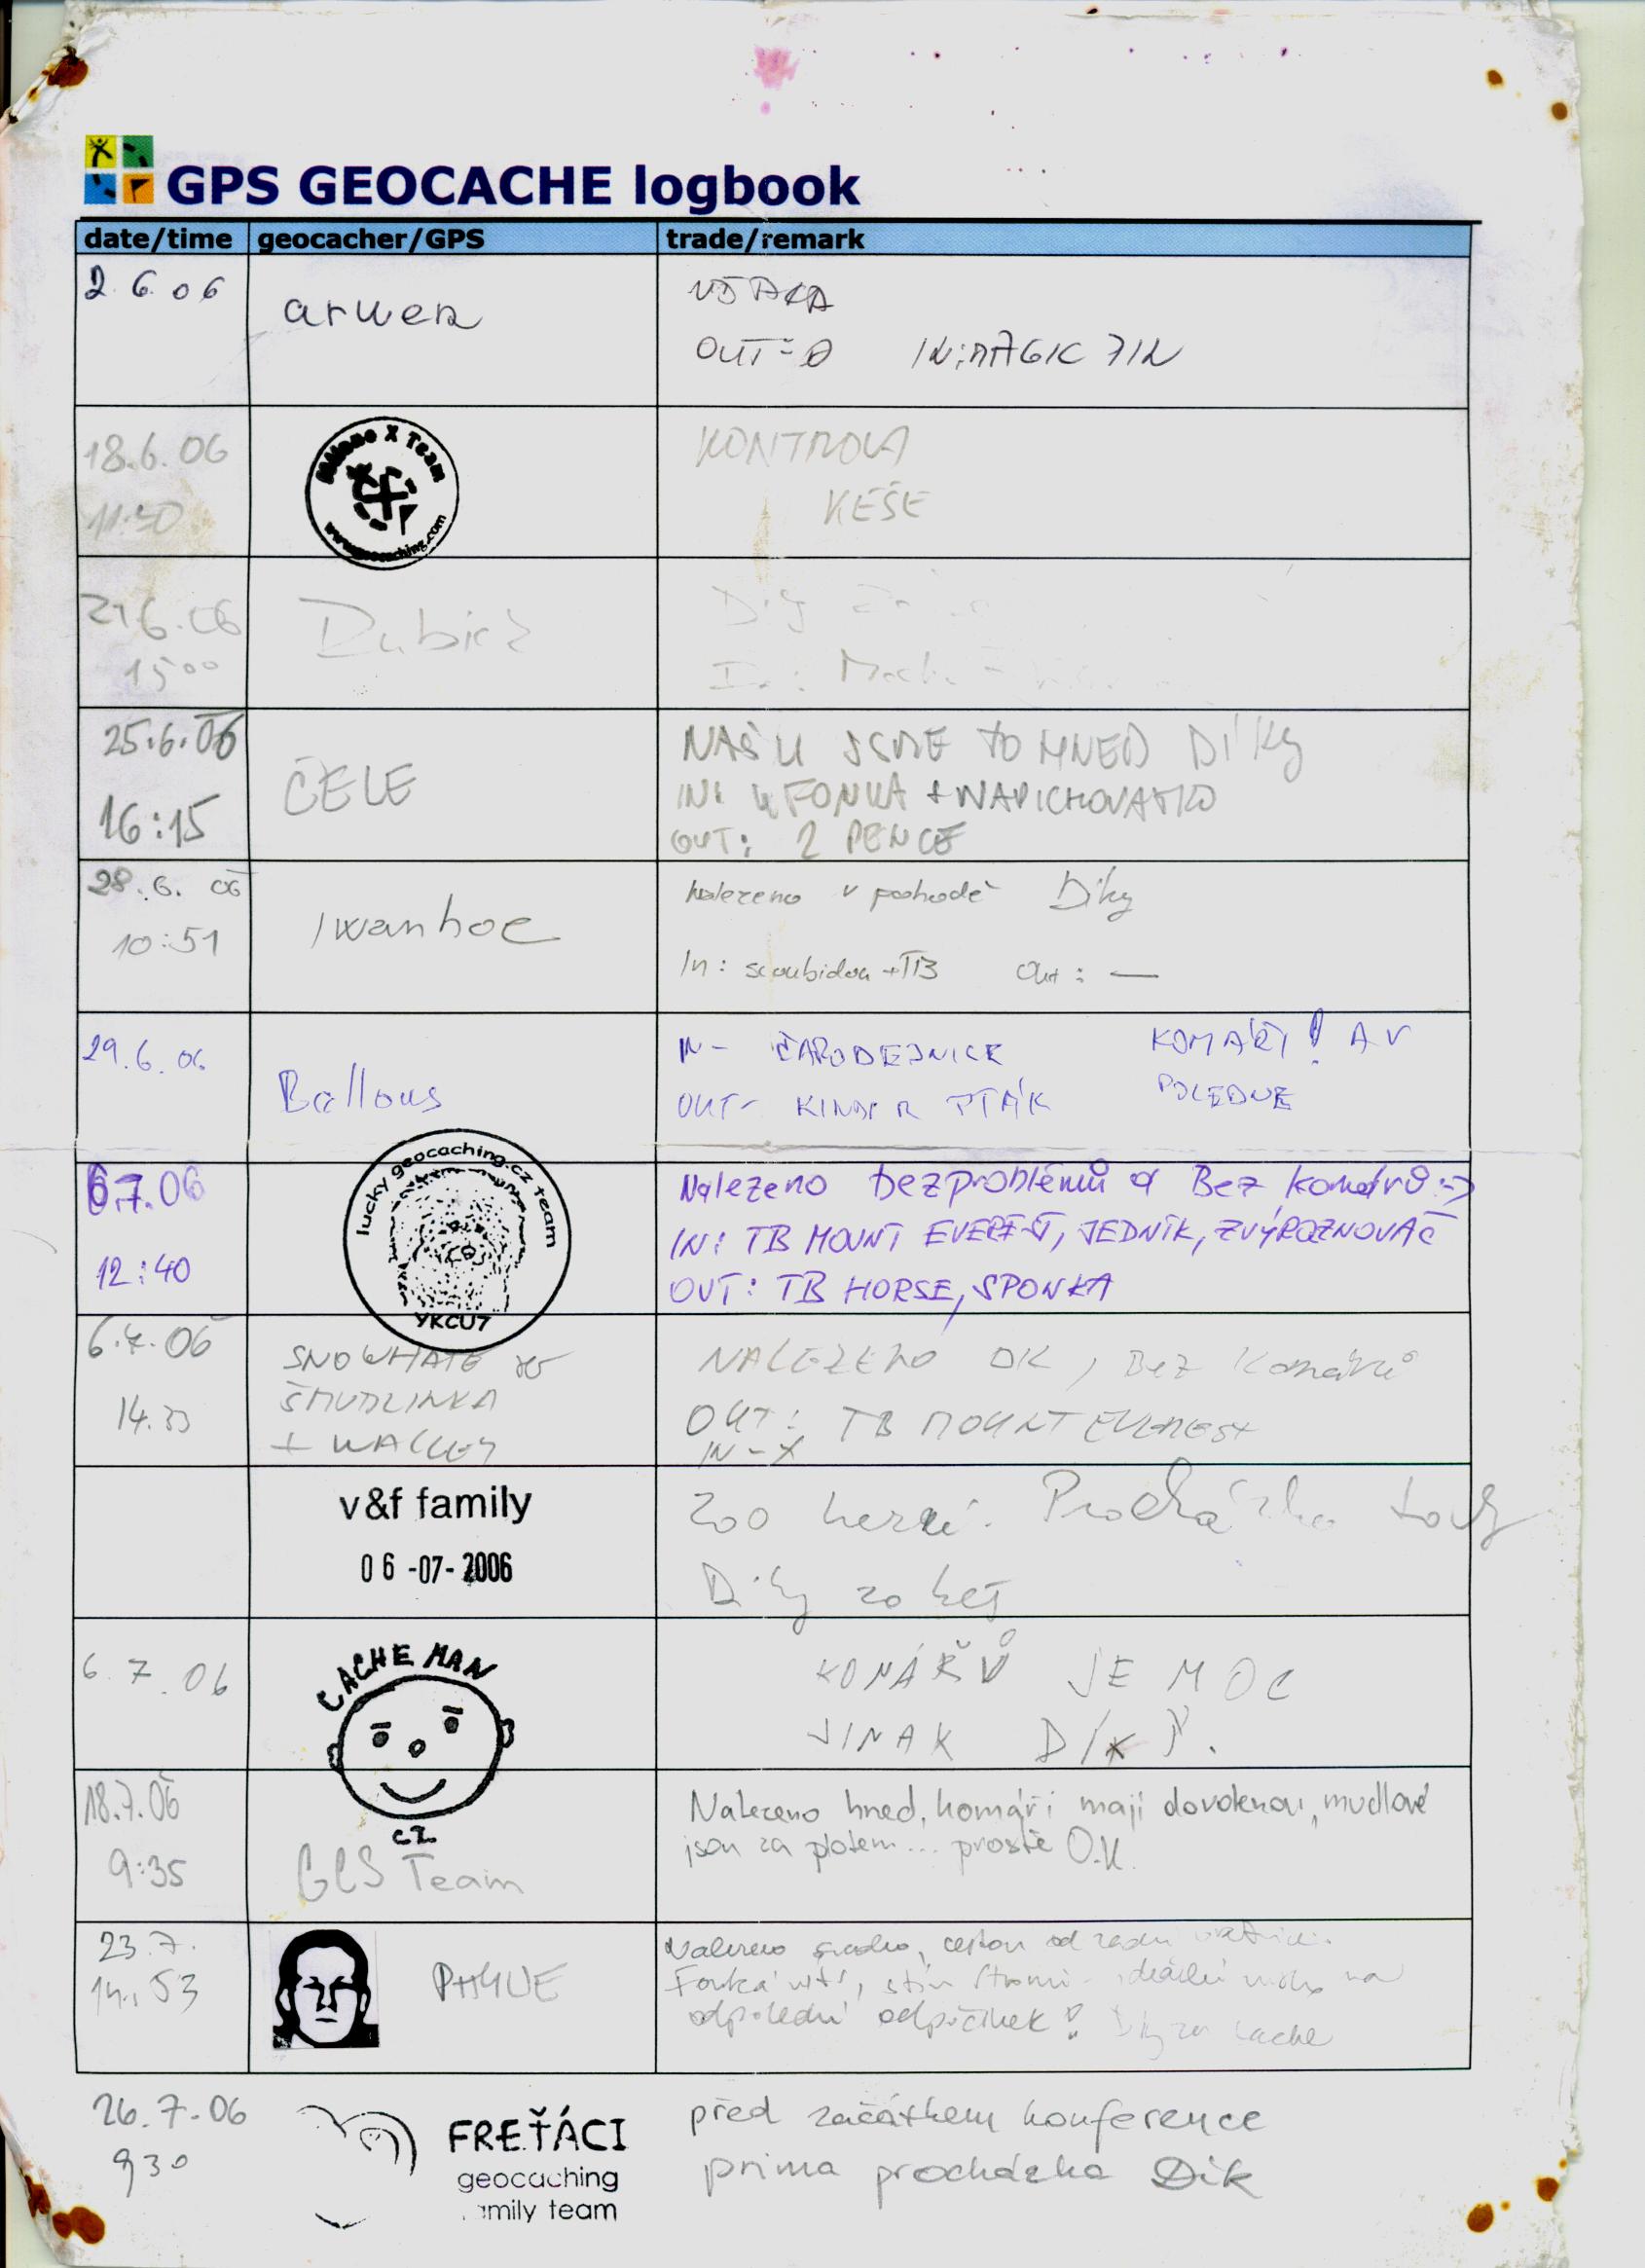 GPS GEOCACHE logbook
date/time geocacher/GPS trade/remark
2.6.06 arwen
OUT=0 IN:MAGIC
18.6.06 KONTROLA
11:30 KEŠE
X Team
www.geocaching.com
21.6.06
15 00
25.6.06 ČELE NAŠLI JSME TO HNED DÍKy
16:15 IN: UFONKA + NAPICHOVATKO
OUT: 2 PENCE
28.6.06 Iwanhoe Nalezeno v pohodě Díky
10:51 In: scoubidou + TB Out: —
29.6.06 Ballous IN- ČARODEJNICE KOMÁŘI! A V
OUT- KINDER PTÁK POLEDNE
6.7.06 Nalezeno bezproblémů a Bez komárů :-)
12:40 IN: TB MOUNT EVEREST, JEDNÍK, ZVÝRAZNOVAČ
OUT: TB HORSE, SPONKA
lucky geocaching.cz team
YKCU7
6.7.06 SNOWHATE NALEZENO OK, BEZ Komárů
14.33 ŠMUDLINKA OUT: TB MOUNT EVEREST
+ WALLEY IN-X
v&f family Procházka
06-07-2006 Díky za keš
6.7.06 CACHE MAN KOMÁRŮ JE MOC
CZ JINAK DÍKY.
18.7.06 GCS Team Nalezeno hned, komáři mají dovolenou, mudlové
9:35 jsou za plotem... prostě O.K.
23.7. Nalezeno snadno, cestou od zadní
14:53 Fouká vítr, stín stromů - ideální místo na
odpolední odpočinek! Díky za cache
26.7.06 FREŤÁCI před začátkem konference
9 30 geocaching prima procházka Dík
family team